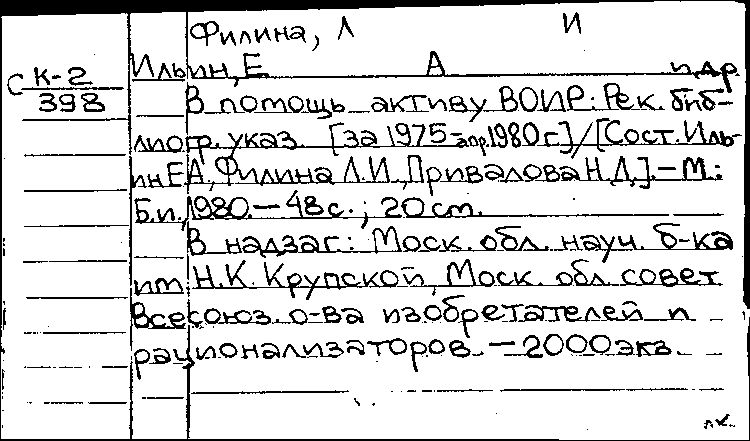 Филина, Л И
Ильин, Е А и др
С К-2
398
В помощь активу ВОИР: Рек. биб-
лиогр. указ. [за 1975-апр.1980г.]/[Сост. Иль-
ин Е.А., Филина Л.И., Привалова Н.Д.]. — М.:
Б.и., 1980. — 48 с.; 20 см.
В надзаг.: Моск. обл. науч. б-ка
им. Н.К. Крупской, Моск. обл. совет
Всесоюз. о-ва изобретателей и
рационализаторов. — 2000 экз.